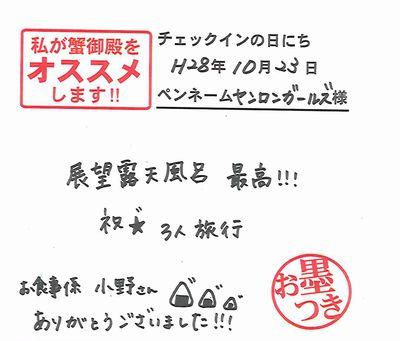 私が蟹御殿を
オススメ
します!!
チェックインの日にち
H28年 10月23日
ペンネームヤンロンガールズ様
展望露天風呂 最高!!!
祝★ 3人旅行
お食事係 小野さん
ありがとうございました!!!
お墨つき